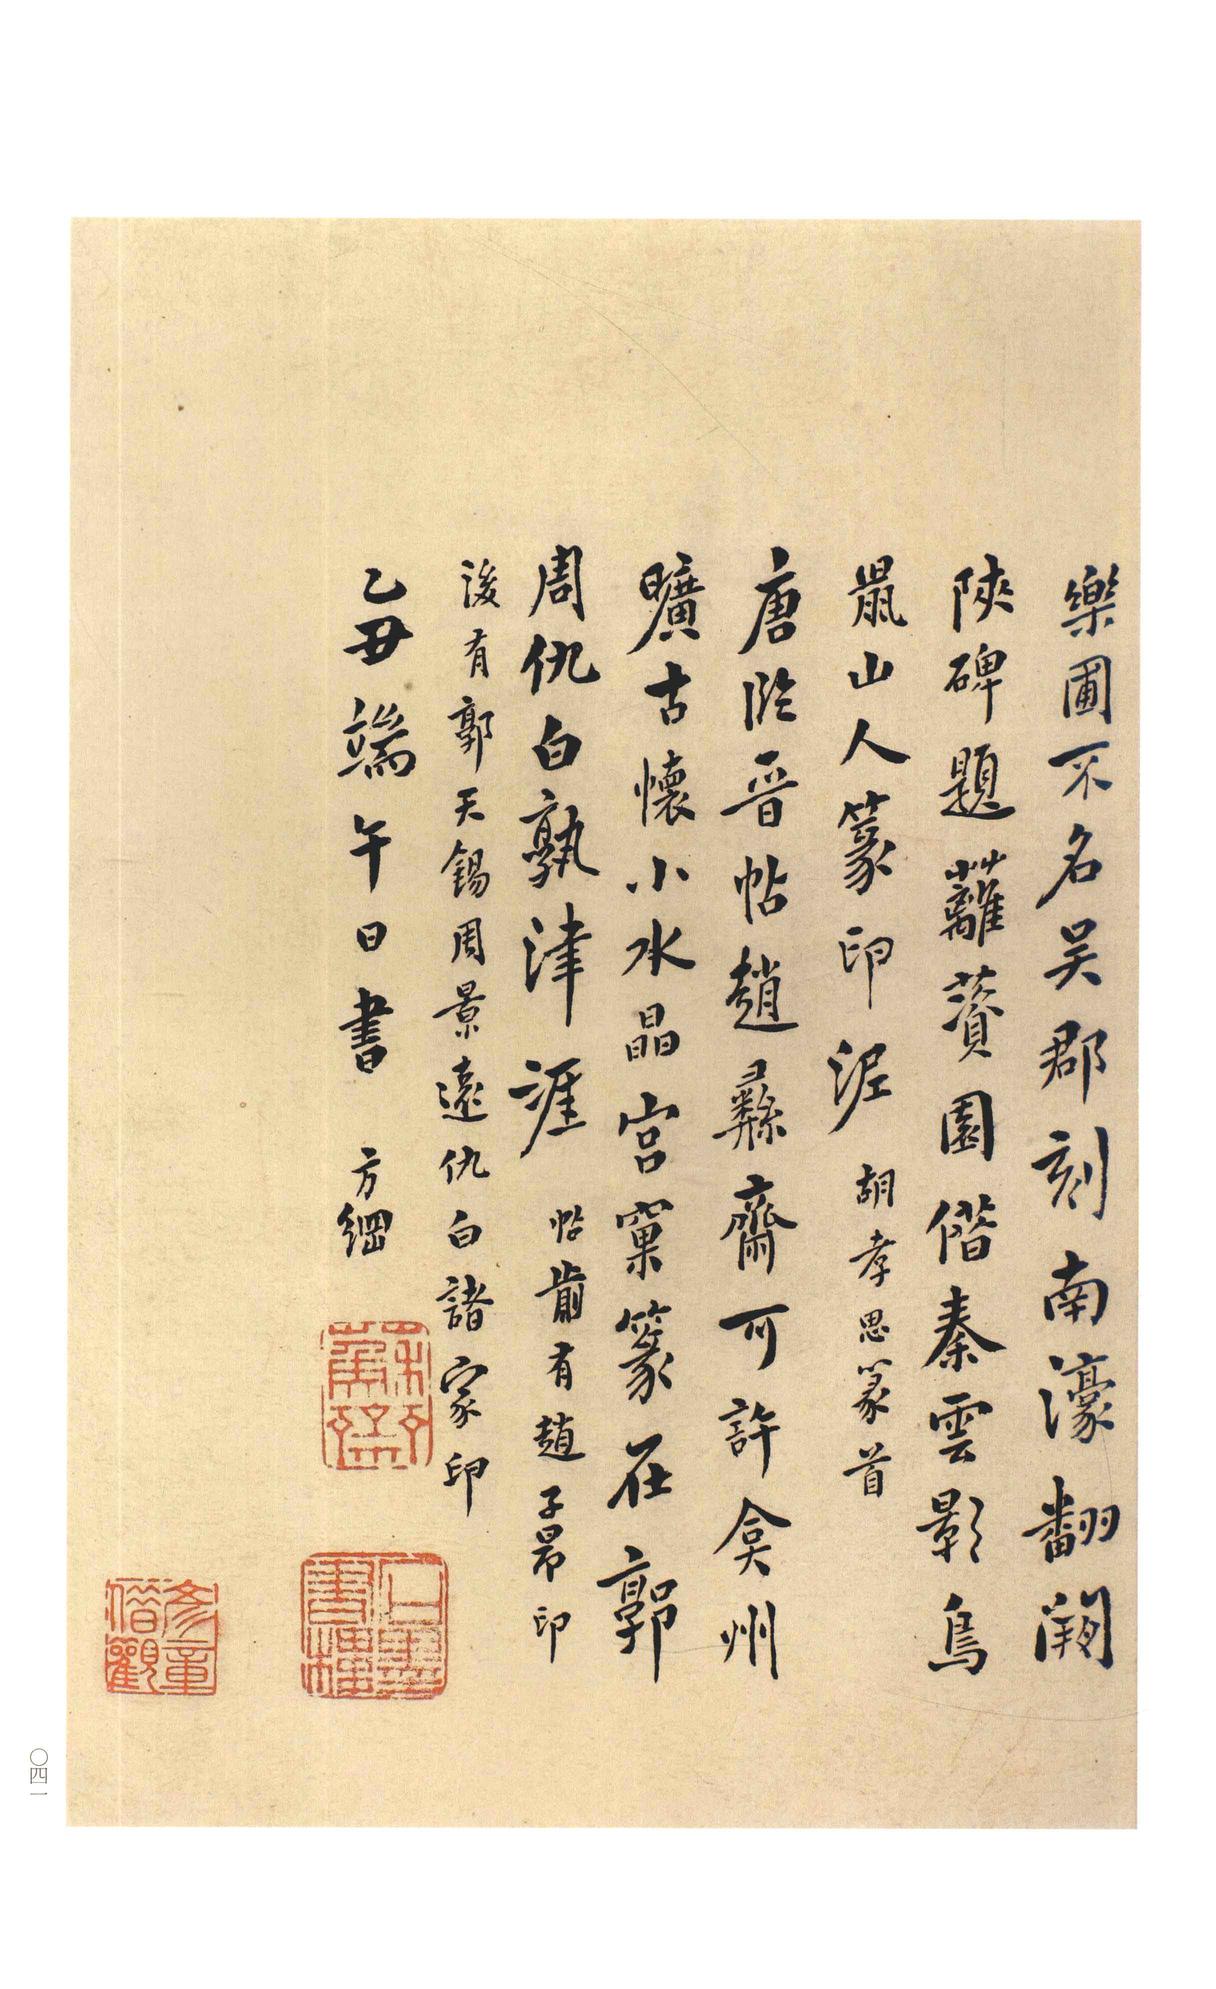 樂圃不名吴郡刻南濠翻闕
陝碑題蘺薋園偕秦雲影鳥
鼠山人篆印泥 胡孝思篆首
唐臨晋帖趙彝齋可許弇州
曠古懷小水晶宫窠篆在郭
周仇白孰津涯 帖前有趙子昂印
後有郭天錫周景遠仇白諸家印
乙丑端午日書 方綱
〇四一